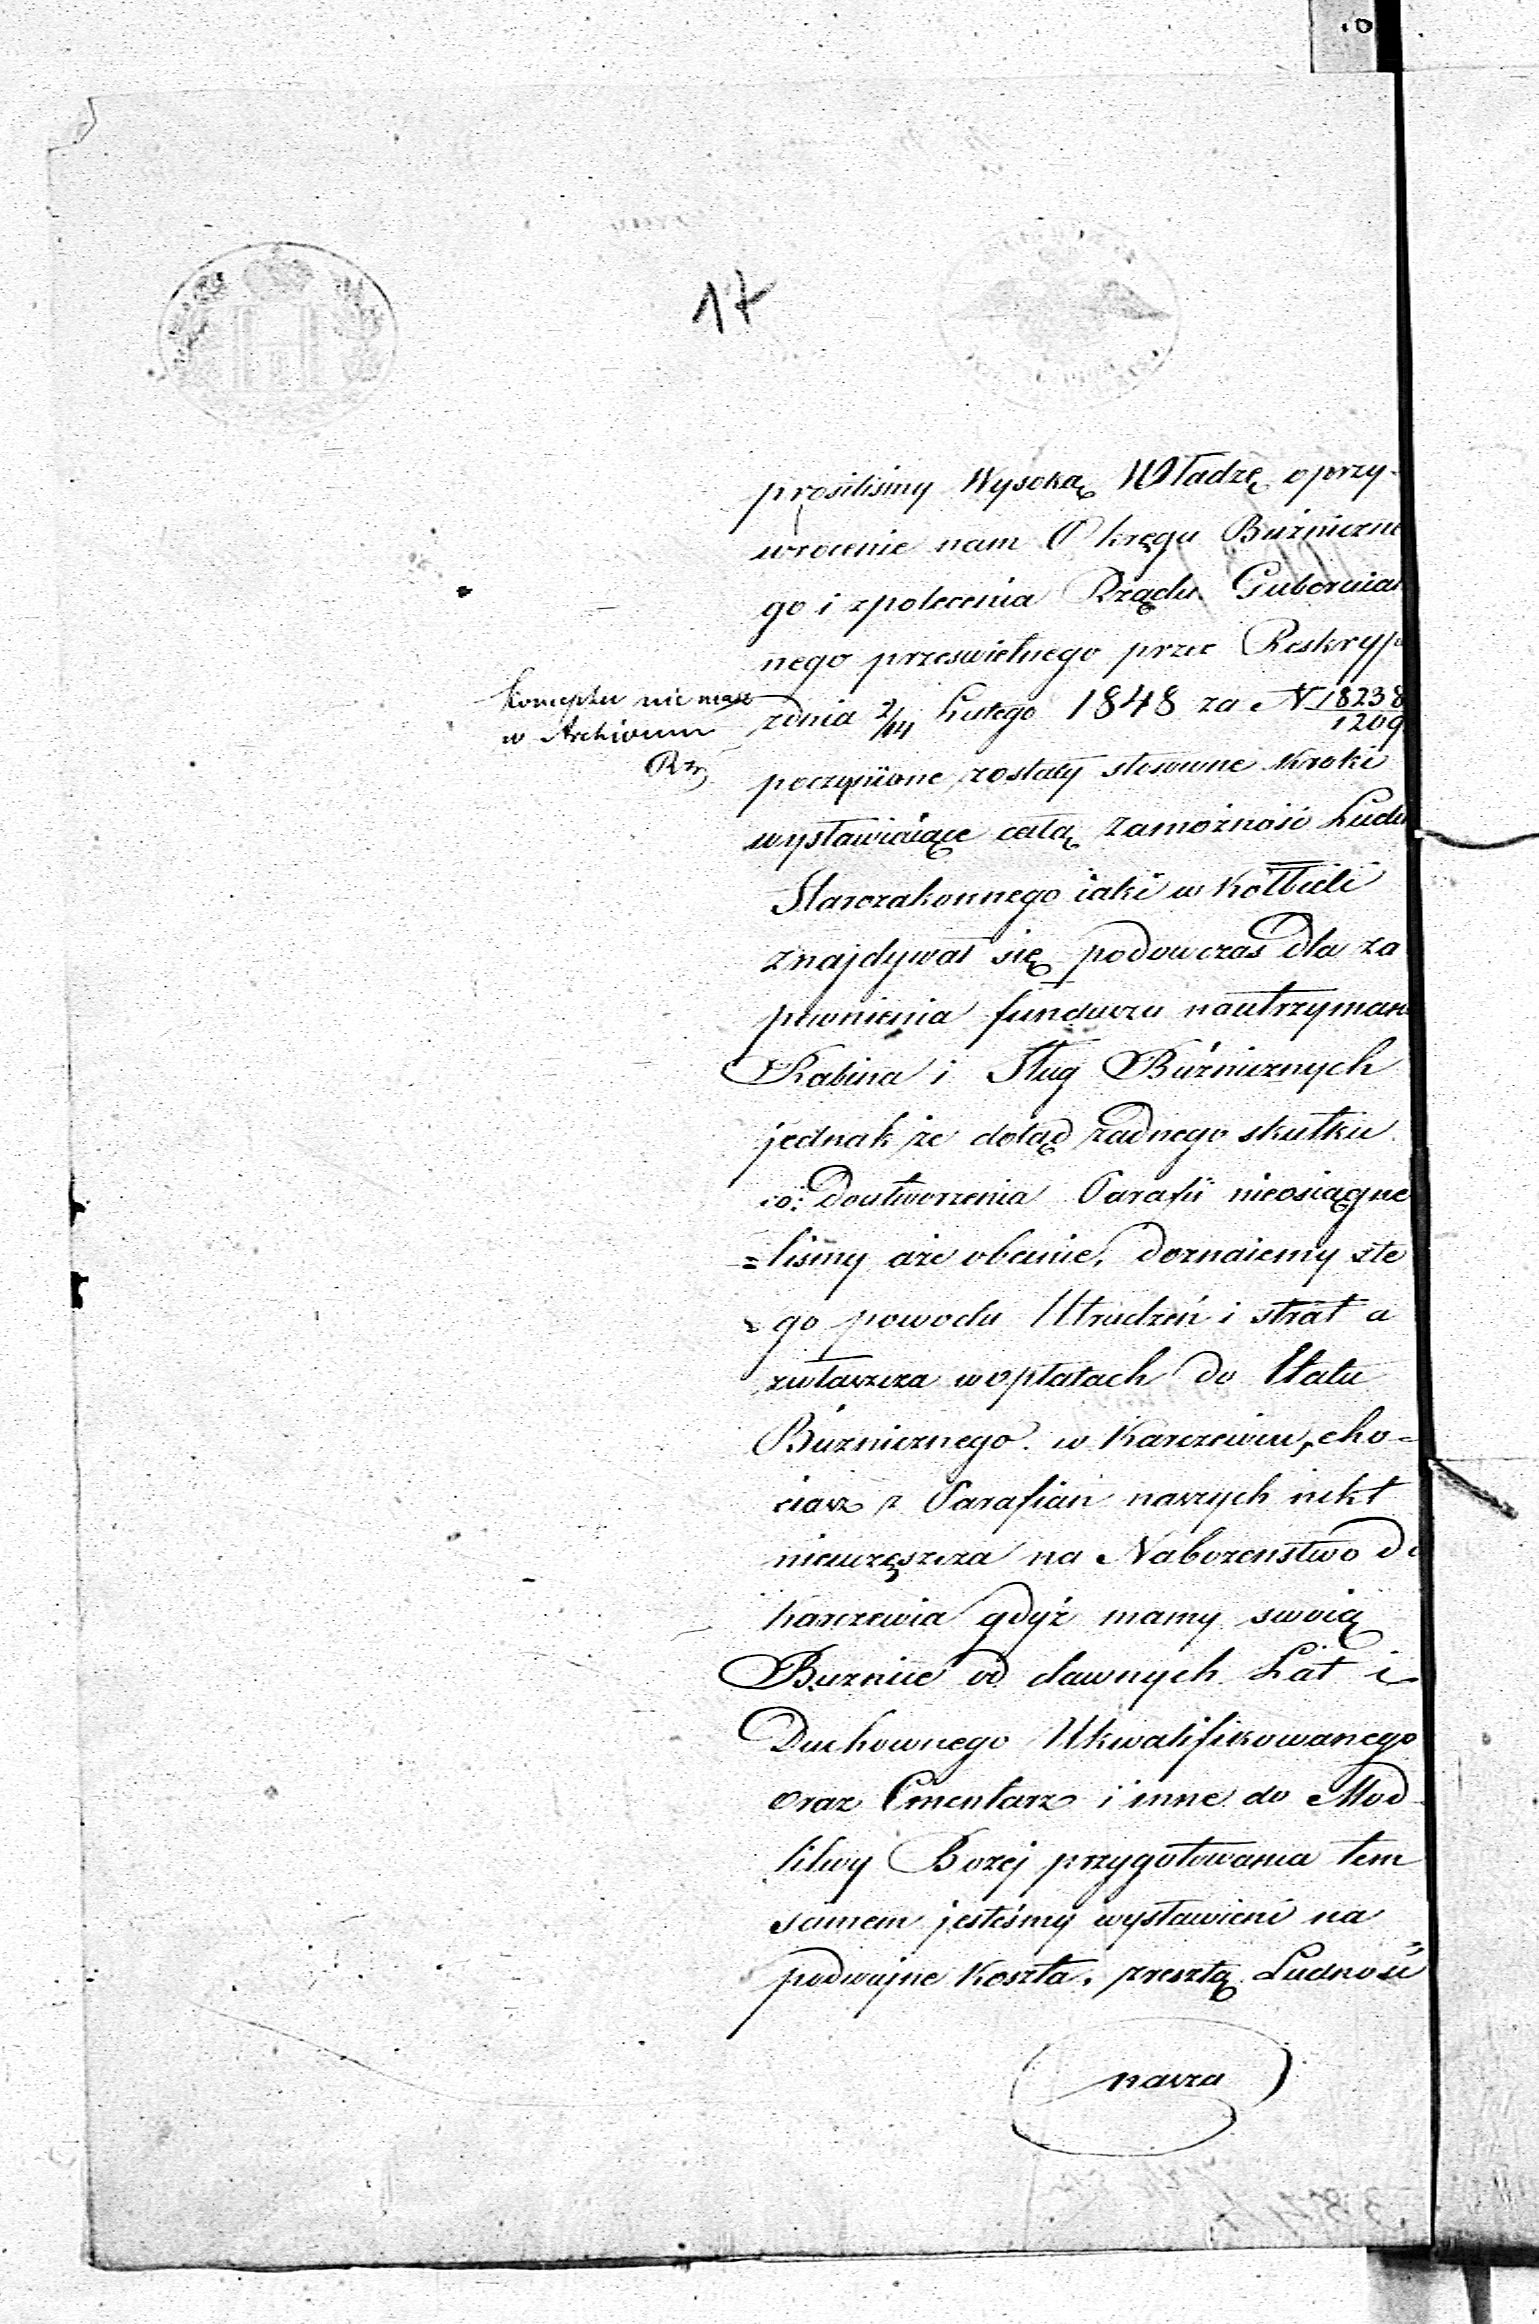 17
prosiliśmy Wysoką Władzę o przy-
wrocenie nam Okręgu Bużniczne
go i zpolecenia Rządu Gubernial
nego prześwietnego przez Reskryp
zdnia 2/14 Lutego 1848 za N 18238/1209
konceptu nie masz
w Archivum
poczynione zostały stosowne kroki
wystawiaiące całą zamożność Ludu
Starozakonnego iaki w Kołbieli
znajdywał się podowczas dla za
pewnienia funduszu na utrzyman
Rabina i Sług Bużnicznych
jednak że dotąd żadnego skutku
co: Doutworzenia Parafii nieosiągne
=liśmy aże obecnie, doznaiemy zte
go powodu Utrudzeń i strat a
zwłaszcza w opłatach do Etatu
Bużnicznego w Karczewiu, cho-
ciasz z Parafian naszych nikt
nieuczęszcza na Nabożenstwo do
Karczewia gdyż mamy swoią
Bużnice od dawnych Lat i
Duchownego Ukwalifikowanego
oraz Cmentarz i inne do Mod
litwy Bozej przygotowania tem
samem jesteśmy wystawieni na
podwujne koszta, zresztą Ludność
nasza